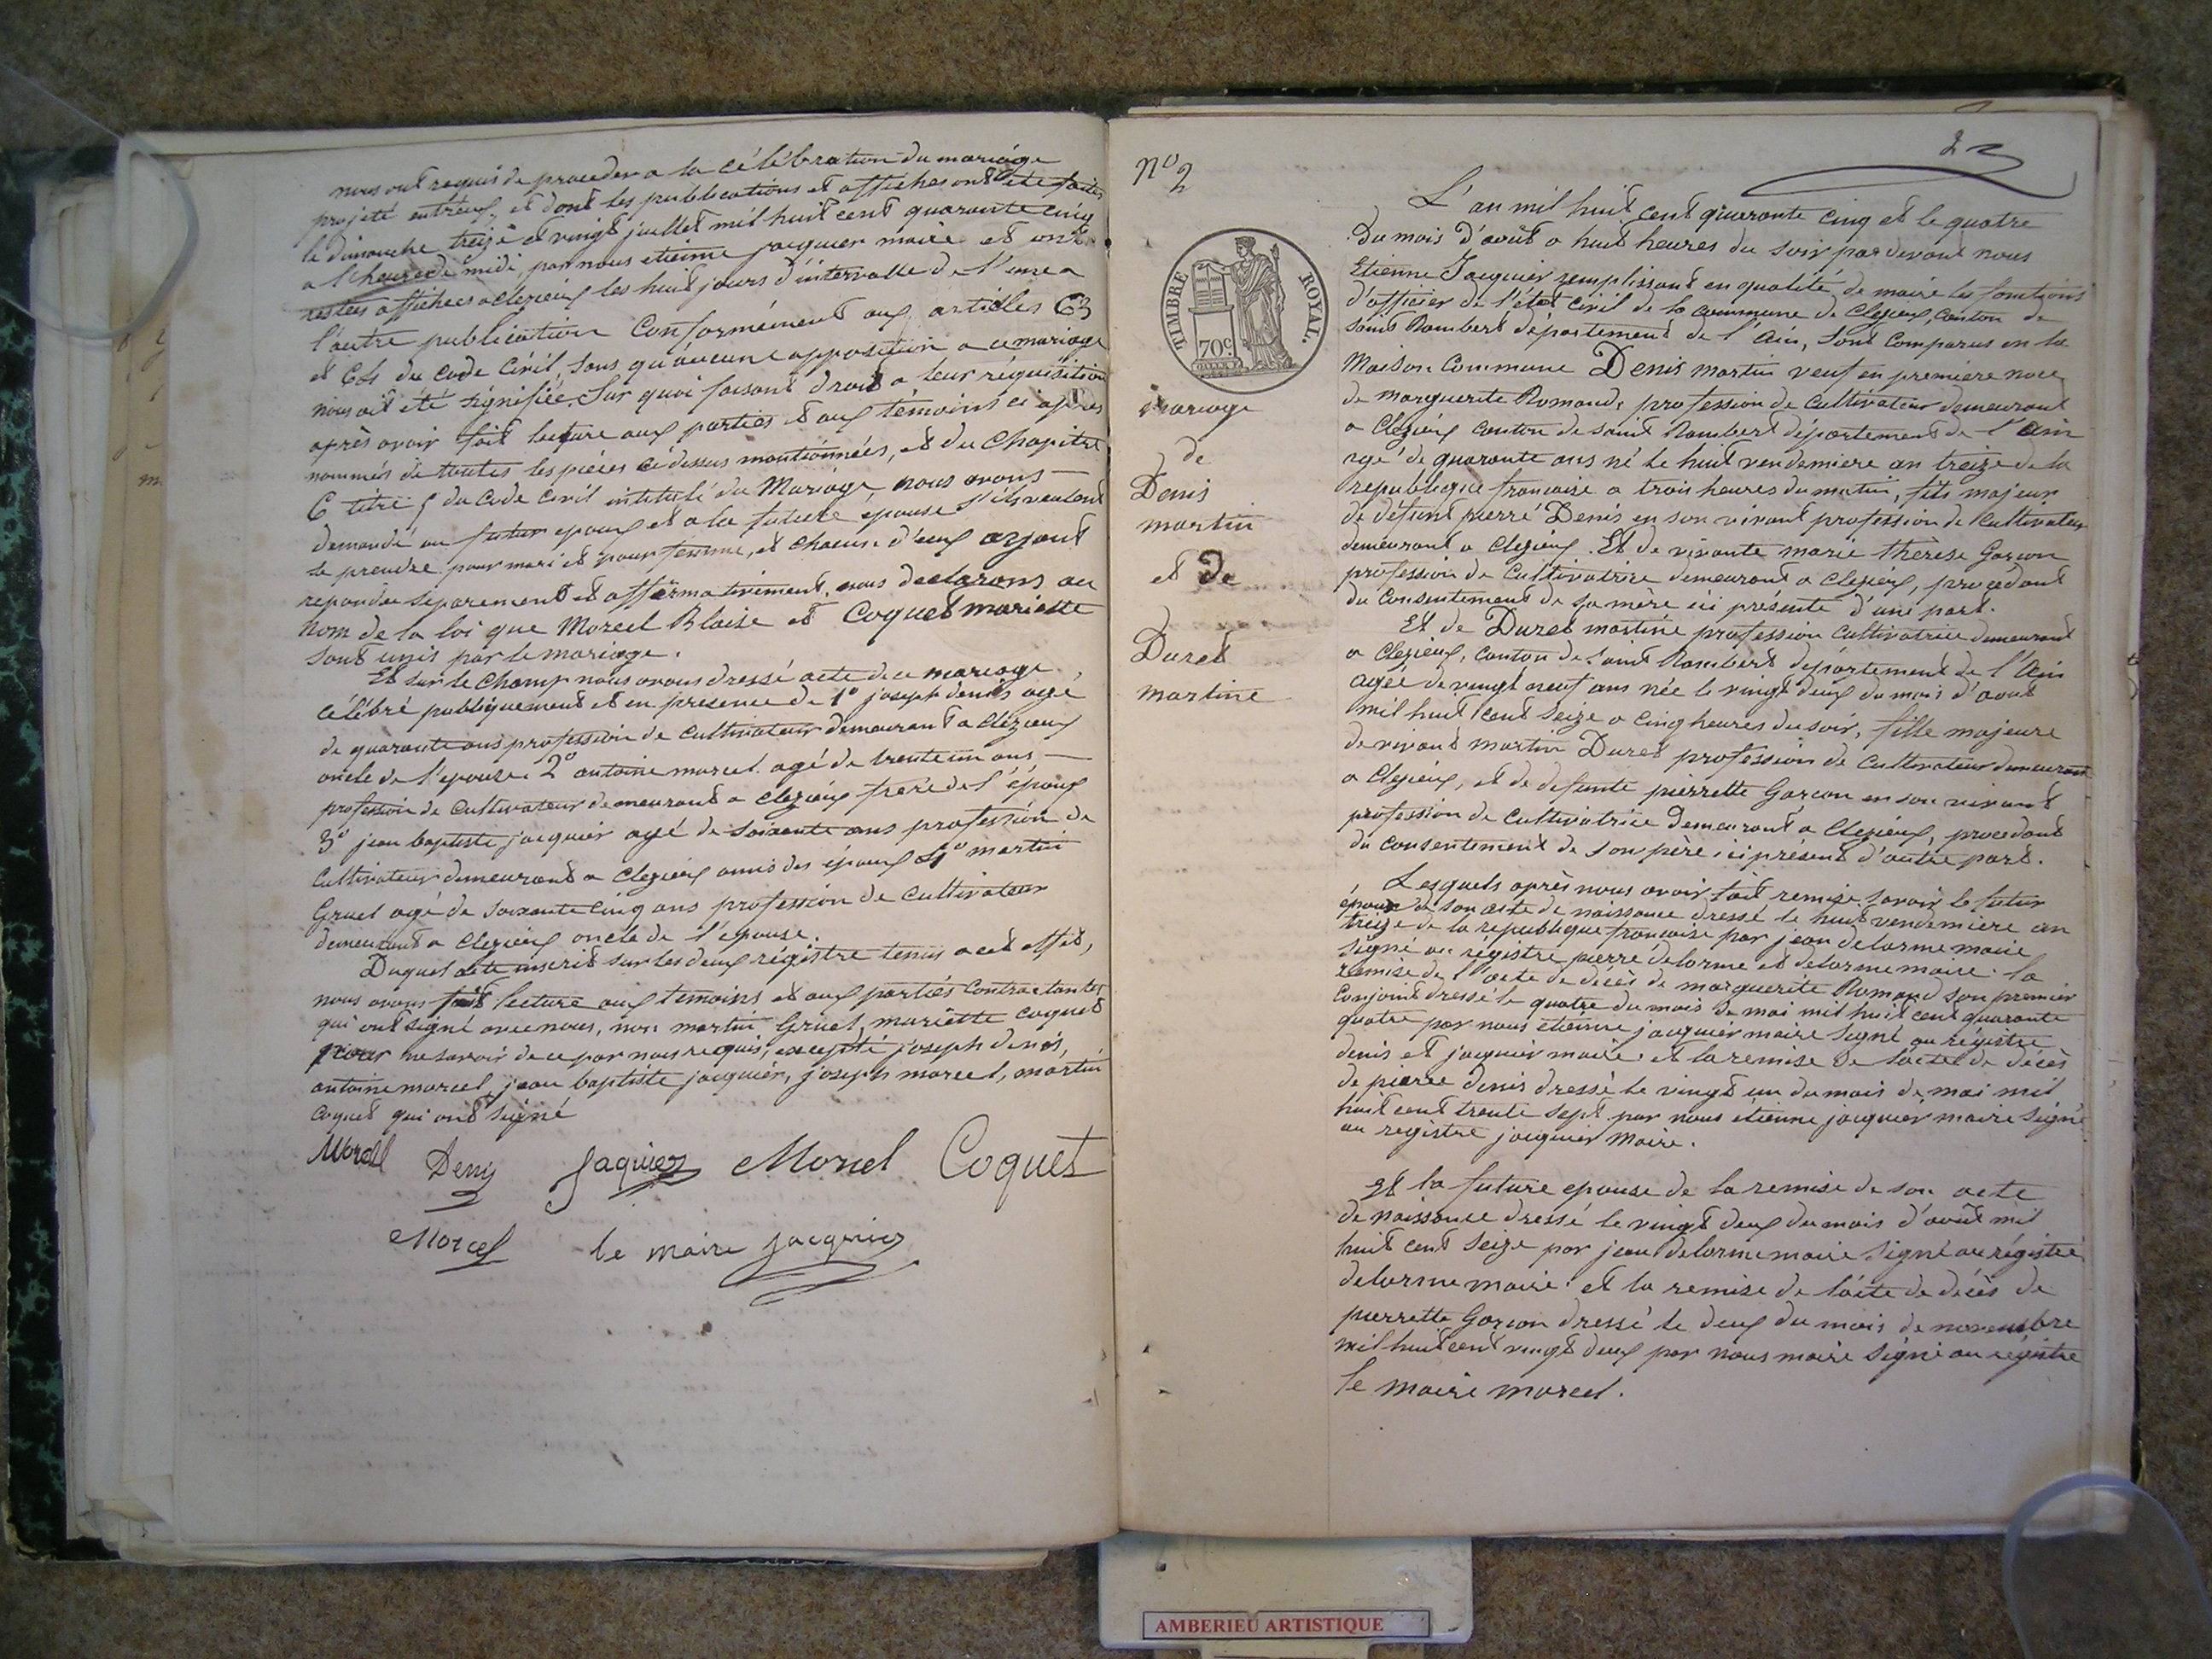 nous ont requis de proceder a la célébration du mariage
projeté entr'eux, et dont les publications et affiches ont été faites
le dimanche treize et vingt juillet mil huit cent quarante cinq
a l'heure de midi, par nous etienne jacquier maire et ont
restées affichees a clezieux les huit jours d'intervalle de l'une a
l'autre publication Conformément aux articles 63
et 64 du Code Civil, sans qu'aucune opposition a ce mariage
nous ait eté signifiée. Sur quoi faisant droit a leur réquisition
après avoir fait lecture aux parties et aux témoins ci après
nommés de toutes les pièces ci dessus mentionnées, et du Chapitre
6 titre 5 du Code Civil intitulé du Mariage, nous avons
demandé au futur epoux et a la future epouse s'ils veulent
se prendre pour mari et pour femme, et chacun d'eux ayant
repondu separement et affirmativement, nous declarons au
nom de la loi que Morcel Blaise et Coquet mariette
sont unis par le mariage.
Et sur le Champ nous avons dressé acte de ce mariage
célébré publiquement et en presence de 1° joseph denis agé
de quarante ans profession de cultivateur demeurant a clézieux
oncle de l'epouse. 2° antoine morcel agé de trente un ans,
profession de Cultivateur demeurant a clezieux frere de l'époux
3° jean baptiste jacquier agé de soixante ans profession de
Cultivateur demeurant a clezieux amis des époux 4° martin
Gruel agé de soixante cinq ans profession de Cultivateur
demeurant a clezieux oncle de l'epouse.
Duquel acte inscrit sur les deux régistre tenus a cet effet,
nous avons fait lecture aux temoins et aux parties Contractantes
qui ont signé avec nous, non martin Gruel, mariette coquet
pour ne savoir de ce par nous requis, excepté joseph denis,
antoine morcel, jean baptiste jacquier, joseph morcel, martin
coquet qui ont signé
Morcel Deny Jaquier Morcel Coquet
Morcel le maire jacquier
2
n° 2
TIMBRE ROYAL.
70c.
mariage
de
Denis
martin
et de
Duret
martine
L'an mil huit cent quarante cinq et le quatre
Du mois d'août a huit heures du soir par devant nous
Etienne Jacquier remplissant en qualité de maire les fonctions
d'officier de l'état civil de la commune de Clezieux, canton de
saint Rambert département de l'Ain, sont comparus en la
Maison Commune Denis martin veuf en premiere noce
de marguerite Romand, profession de Cultivateur demeurant
a Clezieux canton de saint Rambert département de l'Ain
agé de quarante ans né le huit vendemiere an treize de la
republique francaise a trois heures du matin, fils majeur
de défunt pierre Denis en son vivant profession de Cultivateur
demeurant a clezieux. Et de vivante marie thérèse Garcon
profession de Cultivatrice demeurant a clezieux, procédant
du Consentement de sa mère ici présente d'une part.
Et de Duret martine profession Cultivatrice demeurant
a Clezieux, canton de saint Rambert département de l'Ain
agée de vingt neuf ans née le vingt deux du mois d'aout
mil huit cent seize a cinq heures du soir, fille majeure
de vivant martin Duret profession de Cultivateur demeurant
a Clezieux, et de defunte pierrette Garcon en son vivant
profession de Cultivatrice demeurant a Clezieux, procedant
du consentement de son père ici présent d'autre part.
Lesquels après nous avoir fait remise savoir le futur
époux de son acte de naissance dressé le huit vendemiere an
treize de la republique francaise par jean delorme maire
signé au régistre pierre delorme et delorme maire. la
remise de l'acte de décès de marguerite Romand son premier
Conjoint dressé le quatre du mois de mai mil huit cent quarante
quatre par nous etienne jacquier maire signé au régistre
denis et jacquier maire. et la remise de l'acte de décès
de pierre denis dressé le vingt un du mois de mai mil
huit cent trente sept par nous étienne jacquier maire signé
au registre jacquier maire.
Et la future epouse de la remise de son acte
de naissance dressé le vingt deux du mois d'août mil
huit cent seize par jean delorme maire signé au régistre
delorme maire. et la remise de l'acte de décès de
pierrette Garcon dressé le deux du mois de novembre
mil huit cent vingt deux par nous maire signé au régistre
le maire morcel.
AMBERIEU ARTISTIQUE